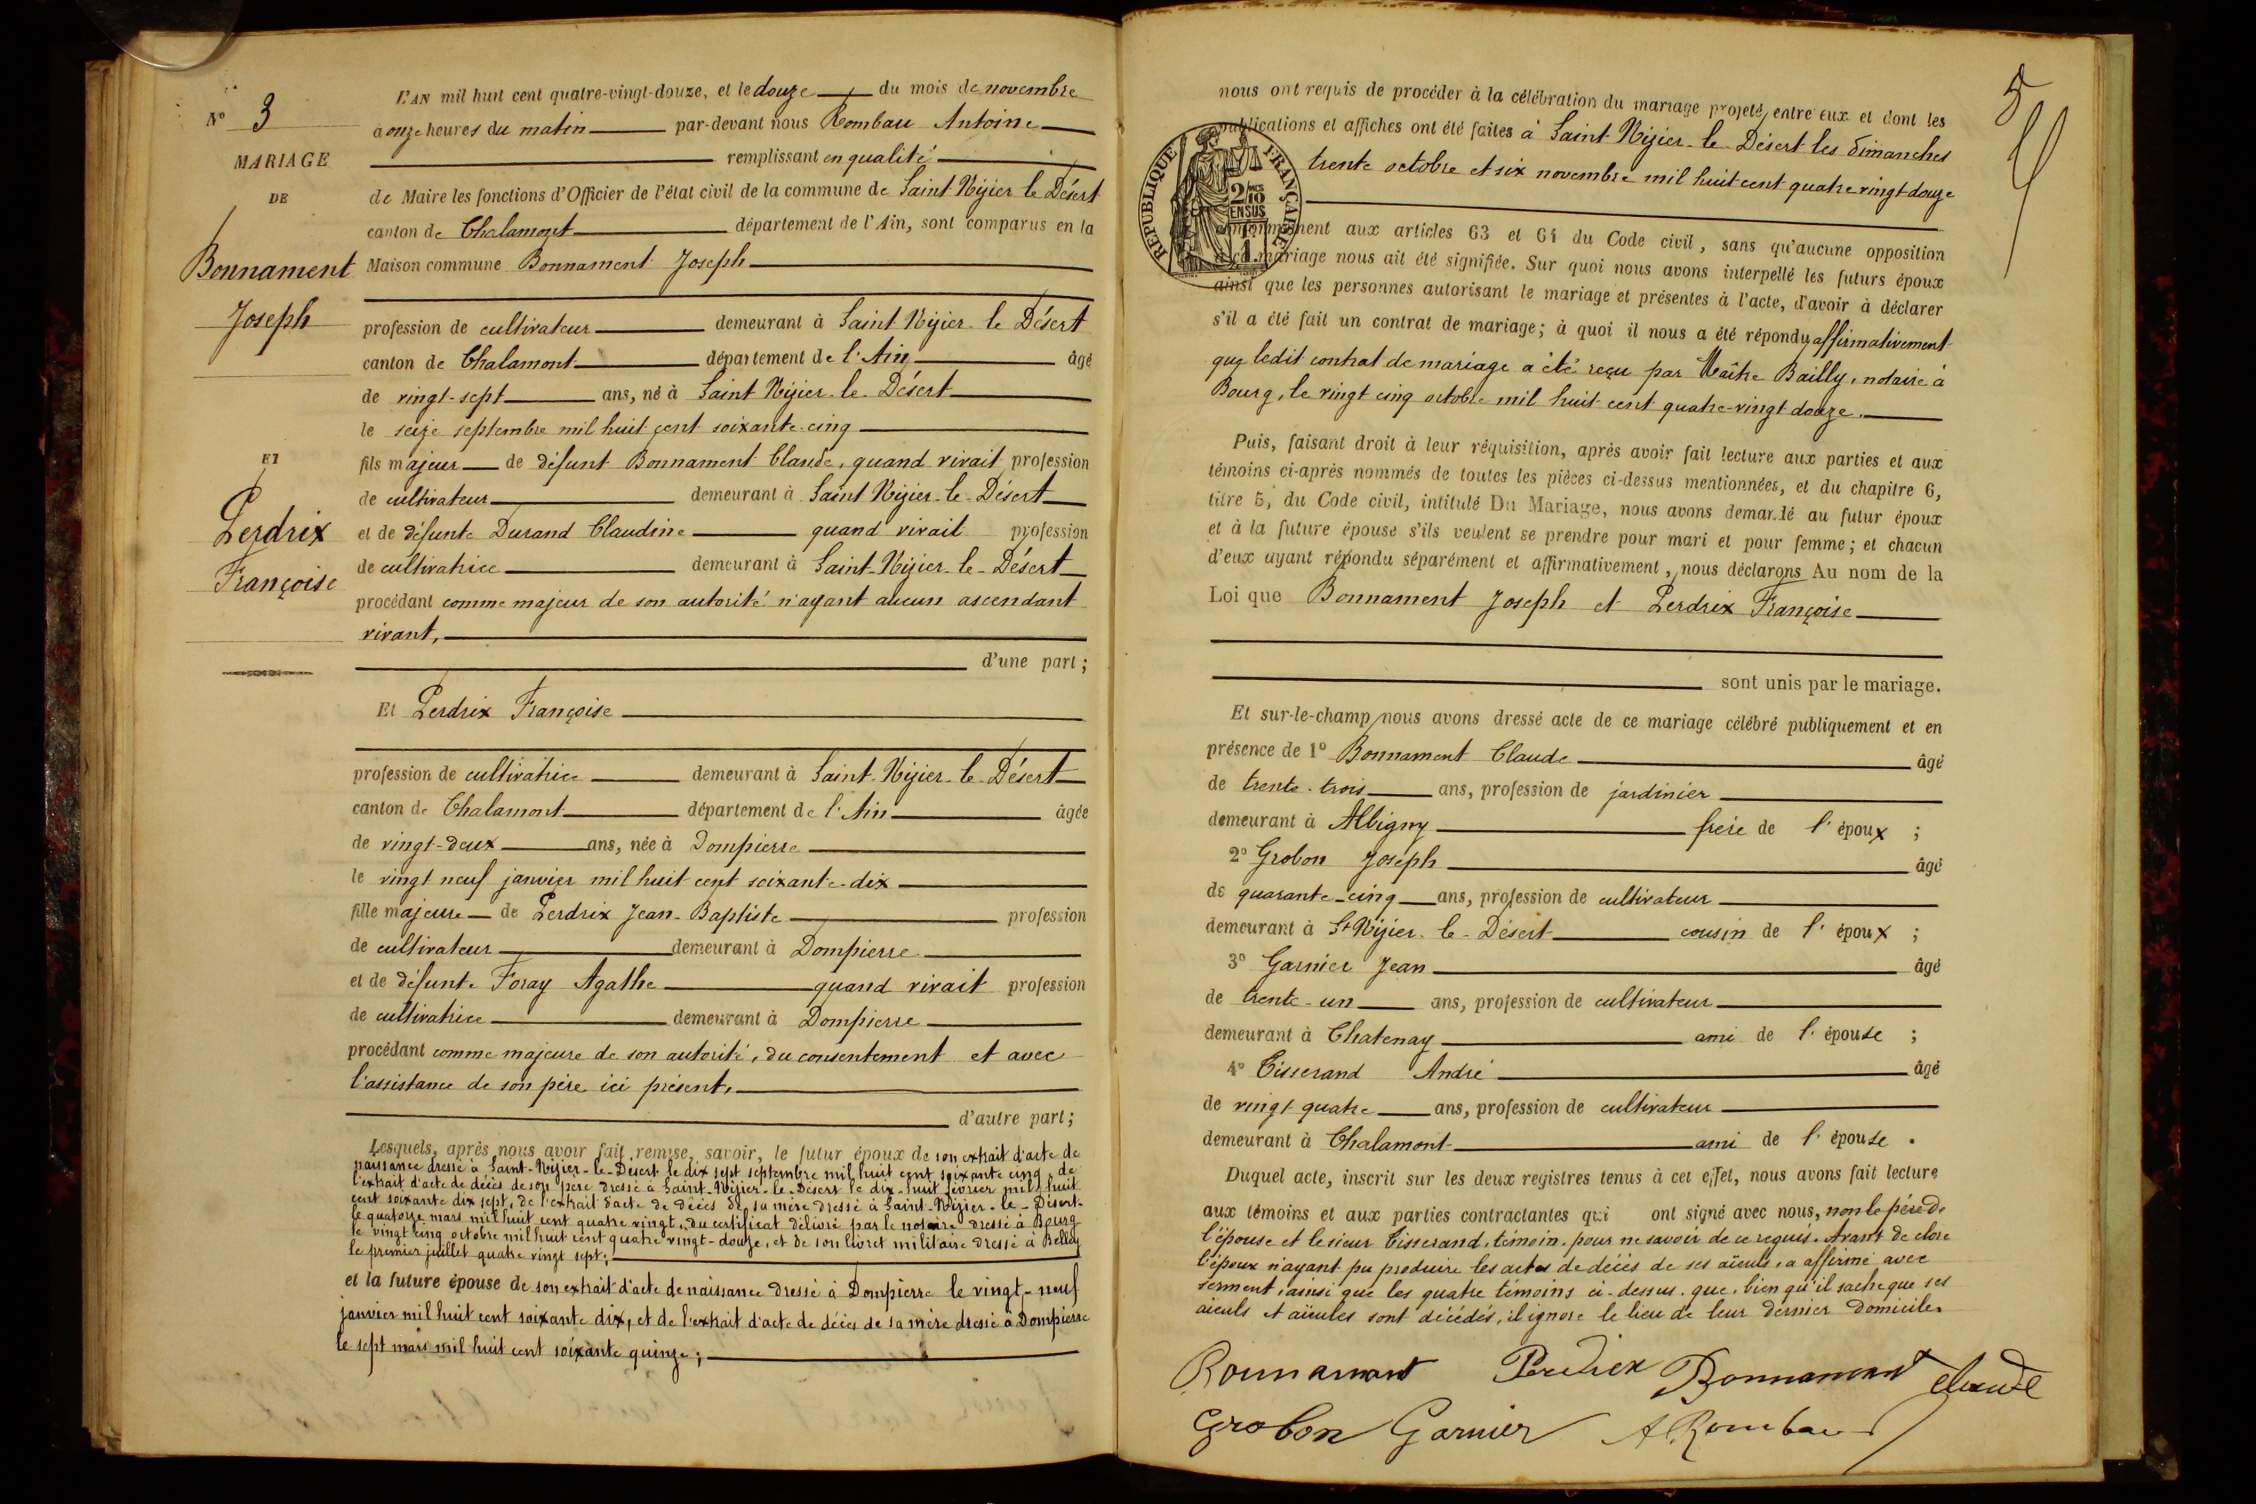 L'AN mil huit cent quatre-vingt-douze, et le douze du mois de novembre
N° 3
à onze heures du matin par-devant nous Rombau Antoine
MARIAGE
remplissant en qualité
DE
de Maire les fonctions d'Officier de l'état civil de la commune de Saint Nizier le Désert
canton de Chalamont département de l'Ain, sont comparus en la
Bonnament
Maison commune Bonnament Joseph
Joseph
profession de cultivateur demeurant à Saint Nizier le Désert
canton de Chalamont département de l'Ain âgé
de vingt-sept ans, né à Saint Nizier-le-Désert
le seize septembre mil huit cent soixante-cinq
ET
fils majeur de défunt Bonnament Claude, quand vivait profession
de cultivateur demeurant à Saint Nizier-le-Désert
Perdrix
et de défunte Durand Claudine quand vivait profession
Françoise
de cultivatrice demeurant à Saint-Nizier-le-Désert
procédant comme majeur de son autorité n'ayant aucun ascendant
vivant,
d'une part;
Et Perdrix Françoise
profession de cultivatrice demeurant à Saint-Nizier-le-Désert
canton de Chalamont département de l'Ain âgée
de vingt-deux ans, née à Dompierre
le vingt neuf janvier mil huit cent soixante-dix
fille majeure de Perdrix Jean-Baptiste profession
de cultivateur demeurant à Dompierre
et de défunte Foray Agathe quand vivait profession
de cultivatrice demeurant à Dompierre
procédant comme majeure de son autorité, du consentement et avec
l'assistance de son père ici présent,
d'autre part;
Lesquels, après nous avoir fait remise, savoir, le futur époux de son extrait d'acte de
naissance dressé à Saint-Nizier-le-Désert le dix sept septembre mil huit cent soixante cinq, de
l'extrait d'acte de décès de son père dressé à Saint-Nizier-le-Désert le dix-huit février mil huit
cent soixante dix sept, de l'extrait d'acte de décès de sa mère dressé à Saint-Nizier-le-Désert
le quatorze mars mil huit cent quatre vingt, du certificat délivré par le notaire dressé à Bourg
le vingt cinq octobre mil huit cent quatre vingt-douze, et de son livret militaire dressé à Belley
le premier juillet quatre vingt sept;
et la future épouse de son extrait d'acte de naissance dressé à Dompierre le vingt-neuf
janvier mil huit cent soixante dix, et de l'extrait d'acte de décès de sa mère dressé à Dompierre
le sept mars mil huit cent soixante quinze;
5
nous ont requis de procéder à la célébration du mariage projeté entre eux et dont les
publications et affiches ont été faites à Saint-Nizier-le-Désert les dimanches
trente octobre et six novembre mil huit cent quatre vingt-douze
RÉPUBLIQUE FRANÇAISE
2/10 EN SUS
conformément aux articles 63 et 64 du Code civil, sans qu'aucune opposition
à ce mariage nous ait été signifiée. Sur quoi nous avons interpellé les futurs époux
ainsi que les personnes autorisant le mariage et présentes à l'acte, d'avoir à déclarer
s'il a été fait un contrat de mariage; à quoi il nous a été répondu affirmativement
que ledit contrat de mariage a été reçu par Maître Bailly, notaire à
Bourg, le vingt cinq octobre mil huit cent quatre-vingt douze.
Puis, faisant droit à leur réquisition, après avoir fait lecture aux parties et aux
témoins ci-après nommés de toutes les pièces ci-dessus mentionnées, et du chapitre 6,
titre 5, du Code civil, intitulé Du Mariage, nous avons demandé au futur époux
et à la future épouse s'ils veulent se prendre pour mari et pour femme; et chacun
d'eux ayant répondu séparément et affirmativement, nous déclarons Au nom de la
Loi que Bonnament Joseph et Perdrix Françoise
sont unis par le mariage.
Et sur-le-champ nous avons dressé acte de ce mariage célébré publiquement et en
présence de 1° Bonnament Claude âgé
de trente-trois ans, profession de jardinier
demeurant à Albigny frère de l'époux;
2° Grobon Joseph âgé
de quarante-cinq ans, profession de cultivateur
demeurant à St Nizier-le-Désert cousin de l'époux;
3° Garnier Jean âgé
de trente-un ans, profession de cultivateur
demeurant à Chatenay ami de l'épouse;
4° Tisserand André âgé
de vingt quatre ans, profession de cultivateur
demeurant à Chalamont ami de l'épouse.
Duquel acte, inscrit sur les deux registres tenus à cet effet, nous avons fait lecture
aux témoins et aux parties contractantes qui ont signé avec nous, non le père de
l'épouse et le sieur Tisserand, témoin, pour ne savoir de ce requis. Avant de clore
l'époux n'ayant pu produire les actes de décès de ses aïeuls, a affirmé avec
serment, ainsi que les quatre témoins ci-dessus, que, bien qu'il sache que ses
aïeuls et aïeules sont décédés, il ignore le lieu de leur dernier domicile.
Bonnament Perdrix Bonnament Claude
Grobon Garnier A. Rombau